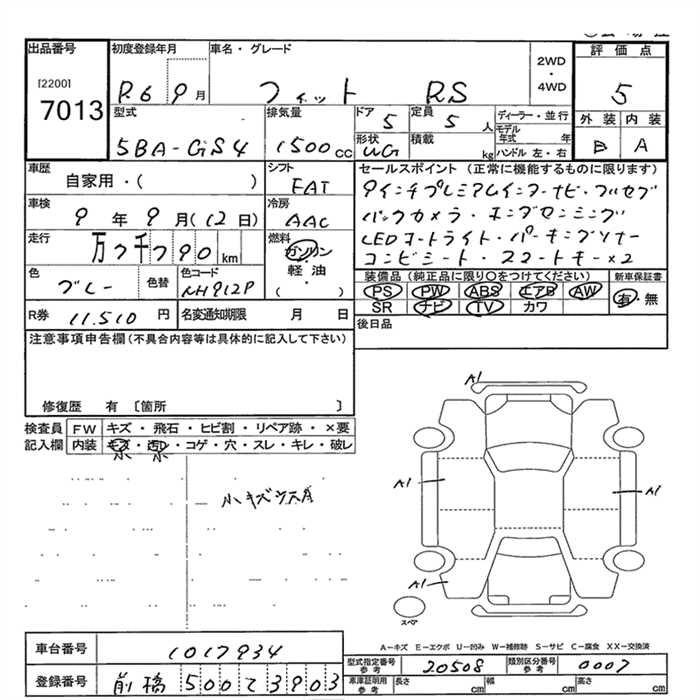 出品番号
[2200]
7013
初度登録年月
R.6 9月
車名・グレード
フィット RS
2WD
・
4WD
評価点
5
型式
5BA-GS4
排気量
1500cc
ドア
5
定員
5人
形状
WG
積載
kg
ディーラー・並行
モデル年式 年
ハンドル 左・右
外装 内装
B A
車歴
自家用・( )
シフト
FAT
セールスポイント (正常に機能するものに限ります)
9インチプレミアムインターナビ・フルセグ
バックカメラ・ホンダセンシング
LEDヘッドライト・パーキングソナー
コンビシート・スマートキー×2
車検
9年9月(12日)
冷房
AAC
走行
万7千790km
燃料
ガソリン
・
軽油
・
( )
色
ブルー
色替
色コード
NH912P
装備品 (純正品に限り○をつけてください)
PS PW ABS エアB AW
SR ナビ TV カワ
新車保証書
有・無
R券 11.510円
名変通知期限 月 日
後日品
注意事項申告欄 (不具合内容等は具体的に記入して下さい)
修復歴 有 〔箇所 〕
検査員
記入欄
FW キズ・飛石・ヒビ割・リペア跡・×要
内装 キズ・汚レ・コゲ・穴・スレ・キレ・破レ
小 小
小キズ
A1
A1
A1
A1
スペア
A-キズ E-エクボ U-凹み W-補修跡 S-サビ C-腐食 XX-交換済
車台番号 1017934
登録番号 前橋 500 3903
型式指定番号
参考
20508
類別区分番号
参考
0007
車庫証明用
参考
長さ cm 幅 cm 高さ cm